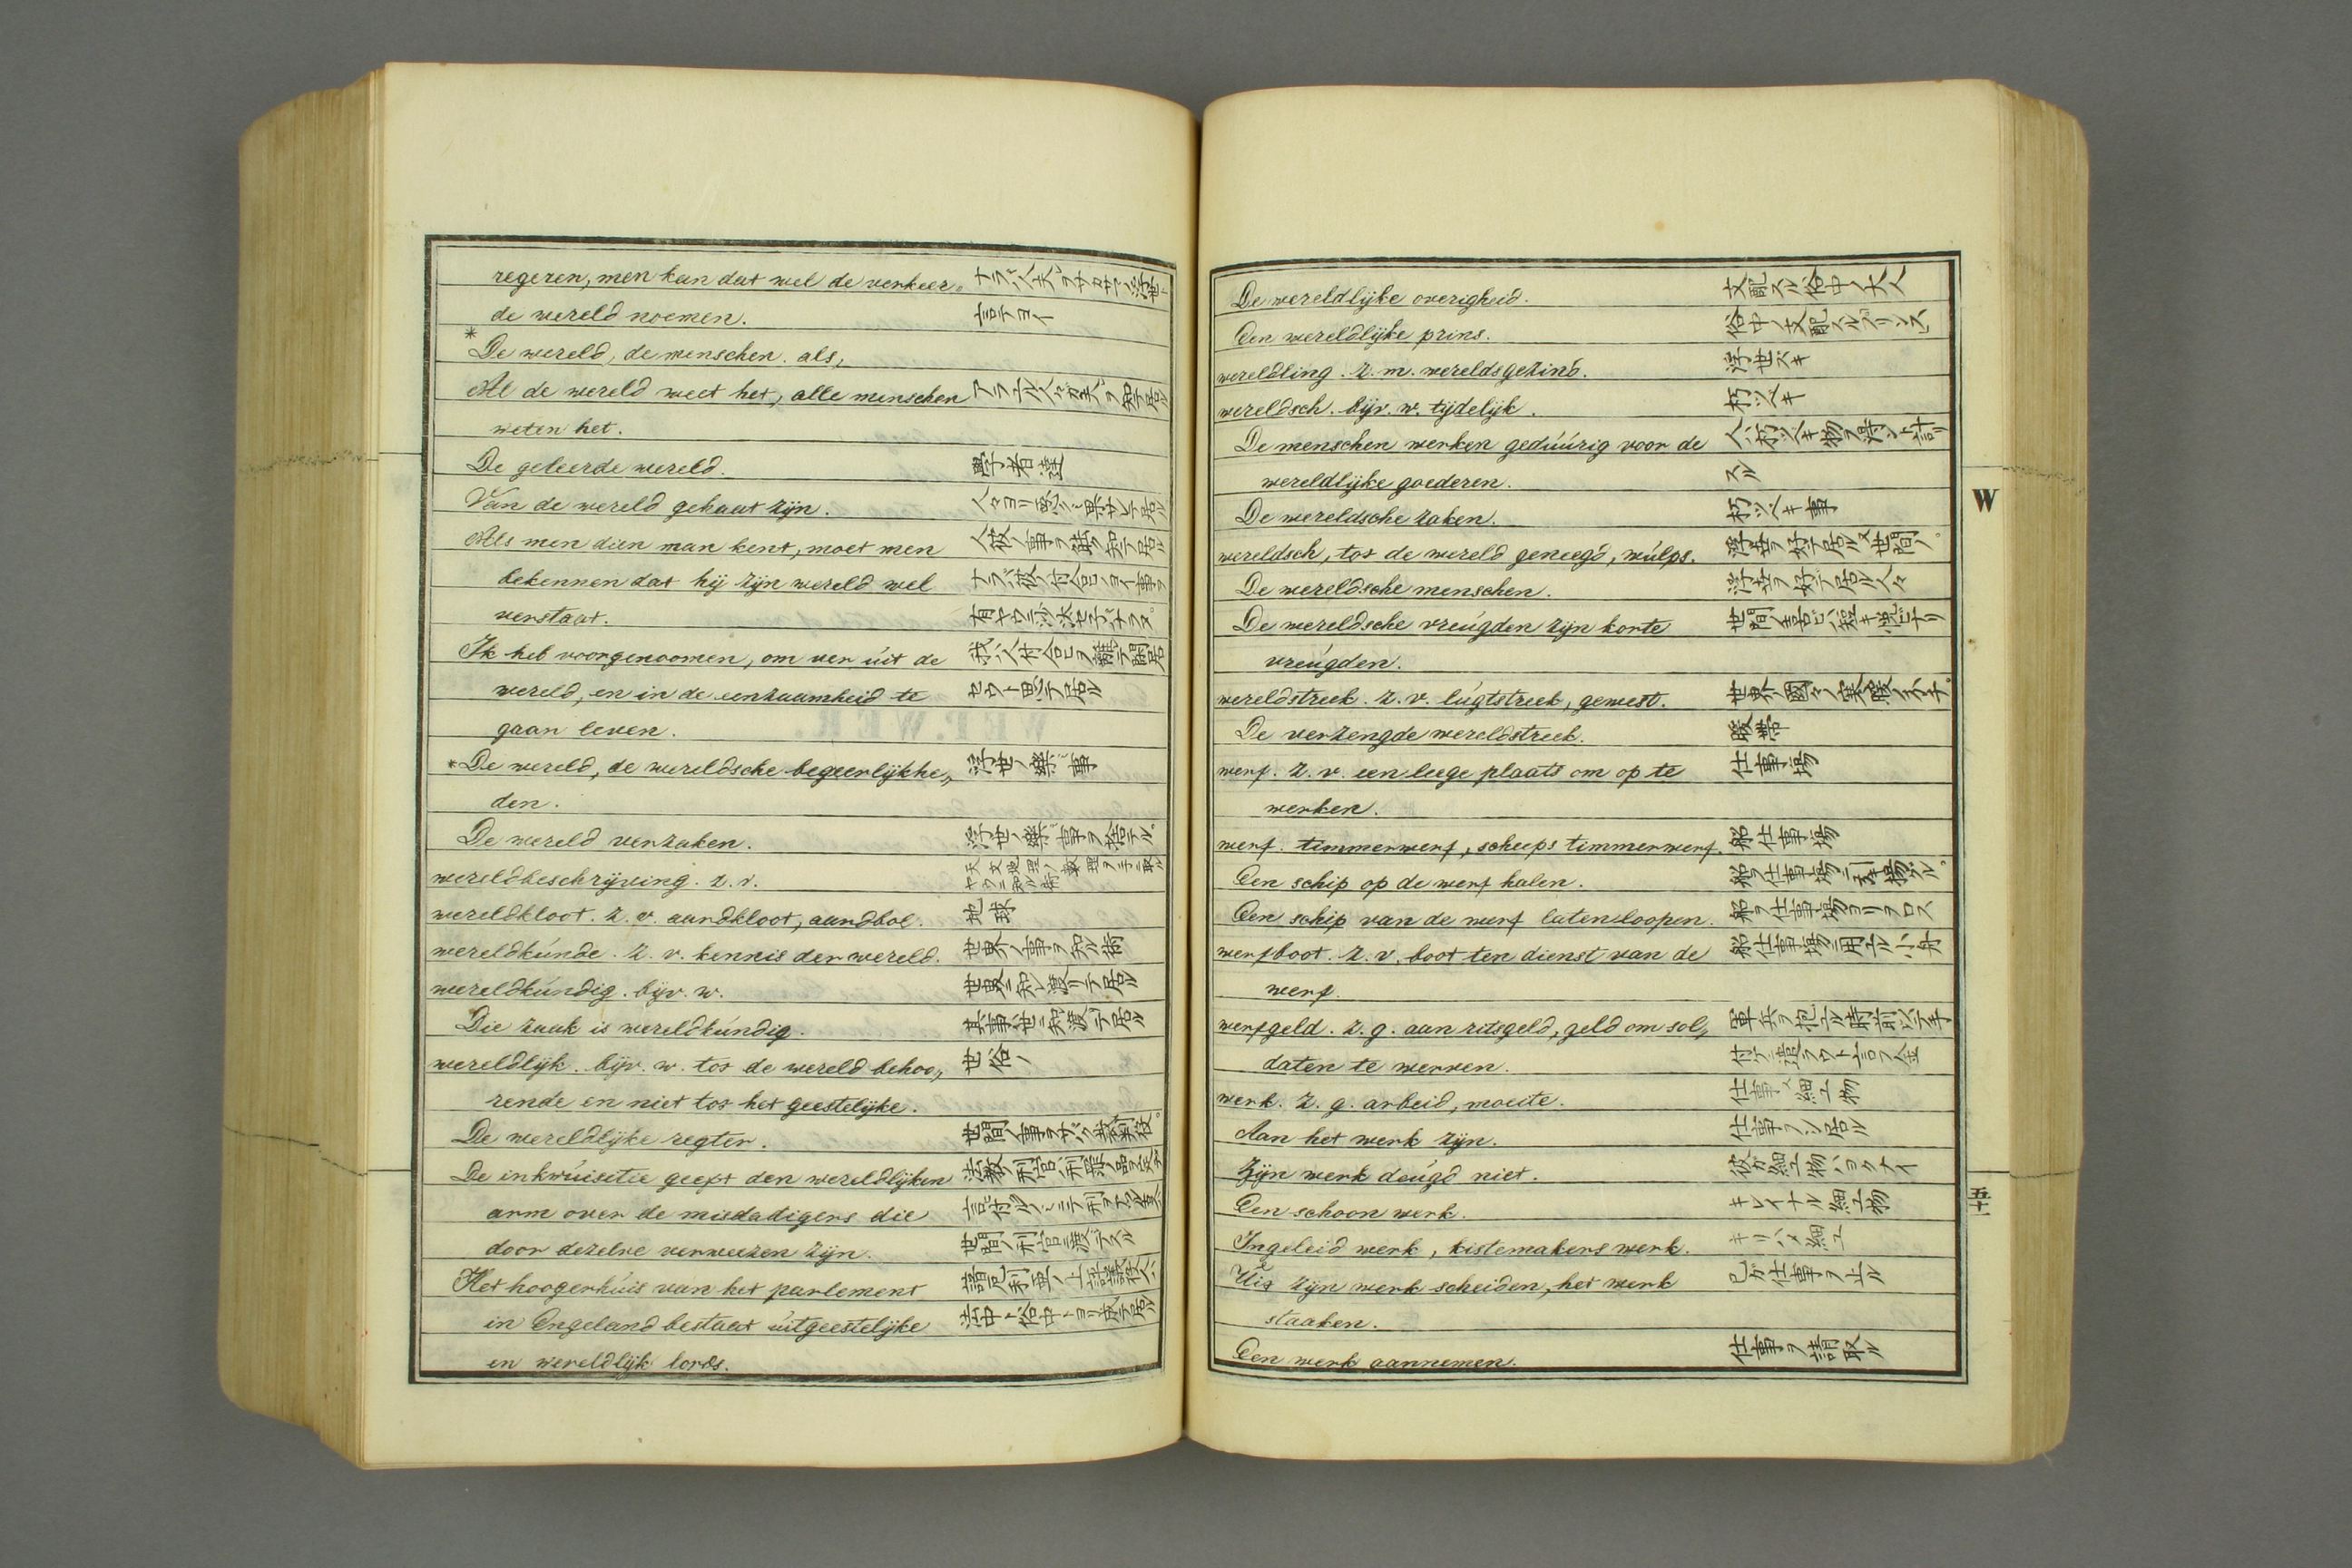 regeren, men kan dat wel de verkeer„ ナラバ夫ヲサカサマノ浮世ト
de wereld noemen. 言テヨイ
* De wereld, de menschen. als,
Al de wereld weet het, alle menschen アラユル人ガ夫ヲ知テ居ル
weten het.
De geleerde wereld. 學者達
Van de wereld gehaat zijn.
Als men dien man kent, moet men 人彼ノ事ヲ能ク知テ居ル
bekennen dat hij zijn wereld wel ナラバ彼ノ付合ヒノヨイ事ヲ
verstaat.
Ik heb voorgenoomen, om ver úit de 我ハ人付合ヒヲ離テ閑居
wereld, en in de eenzaamheid te セウト思テ居ル
gaan leven.
* De wereld, de wereldsche begeerlijkhe„ 浮世ノ樂事
den.
De wereld verzaken. 浮世ノ樂事ヲ捨テル。
wereldbeschrijving. z. v.
wereldkloot. z. v. aardkloot, aardbol. 地球
wereldkúnde. z. v. kennis der wereld. 世界ノ事ヲ知ル術
wereldkúndig. bijv. w. 世界ニ知レ渡リテ居ル
Die zaak is wereldkúndig. 其事ハ世ニ知レ渡リテ居ル
wereldlijk. bijv. w. tot de wereld behoo„ 世俗ノ
rende en niet tot het geestelijke.
De wereldlijke regter. 世間ノ事ヲサバク裁判役。
De inkwúisitie geeft den wereldlijken
arm over de misdadigers die
door dezelve verweezen zijn. 世間ノ刑官ニ渡ズル
Het hoogerhúis van het parlement 諳厄利亜ノ上評議役ハ
in Engeland bestaat úit geestelijke 法中ト俗中トヨリ成テ居ル
en wereldlijk lords.
De wereldlijke overigheid. 支配スル俗中ノ大人
Een wereldlijke prins. 俗中ノ支配スルプリンス
wereldling. z. m. wereldsgezind. 浮世ズキ
wereldsch. bijv. w. tijdelijk. 朽ツベキ
De menschen werken gedúúrig voor de 人ハ朽ツベキ物ヲ得ント計リ
wereldlijke goederen. スル
De wereldsche zaken. 朽ツベキ事
wereldsch, tot de wereld geneegd, wúlps. 浮世ヲ好テ居ル又世間ノ。
De wereldsche menschen. 浮世ヲ好テ居ル人々
De wereldsche vreúgden zijn korte 世間ノ喜ビハ短キ悦ビナリ
vreúgden.
wereldstreek. z. v. lúgtstreek, gewest.
De verzengde wereldstreek. 暖帯
werf. z. v. een leege plaats om op te 仕事場
werken.
werf. timmerwerf, scheeps timmerwerf. 船仕事場
Een schip op de werf halen. 船ヲ仕事場ニ引キ揚ゲル。
Een schip van de werf laten loopen. 船ヲ仕事場ヨリヲロス
werfboot. z. v. boot ten dienst van de 船仕事場ニ用ユル小舟
werf.
werfgeld. z. g. aan ritsgeld, geld om sol„ 軍兵ヲ抱ユル時前以テ手
daten te werven. 付ニ遣ラウト言フ金
werk. z. g. arbeid, moeite. 仕事又細工物
Aan het werk zijn. 仕事ヲシテ居ル
Zijn werk deúgd niet. 彼ガ細工物ハヨクナイ
Een schoon werk. キレイナル細工物
Ingeleid werk, kistemakers werk. キリハメ細工
Uit zijn werk scheiden, het werk 己ガ仕事ヲ止ル
staaken.
Een werk aannemen. 仕事ヲ請取ル
W
五十